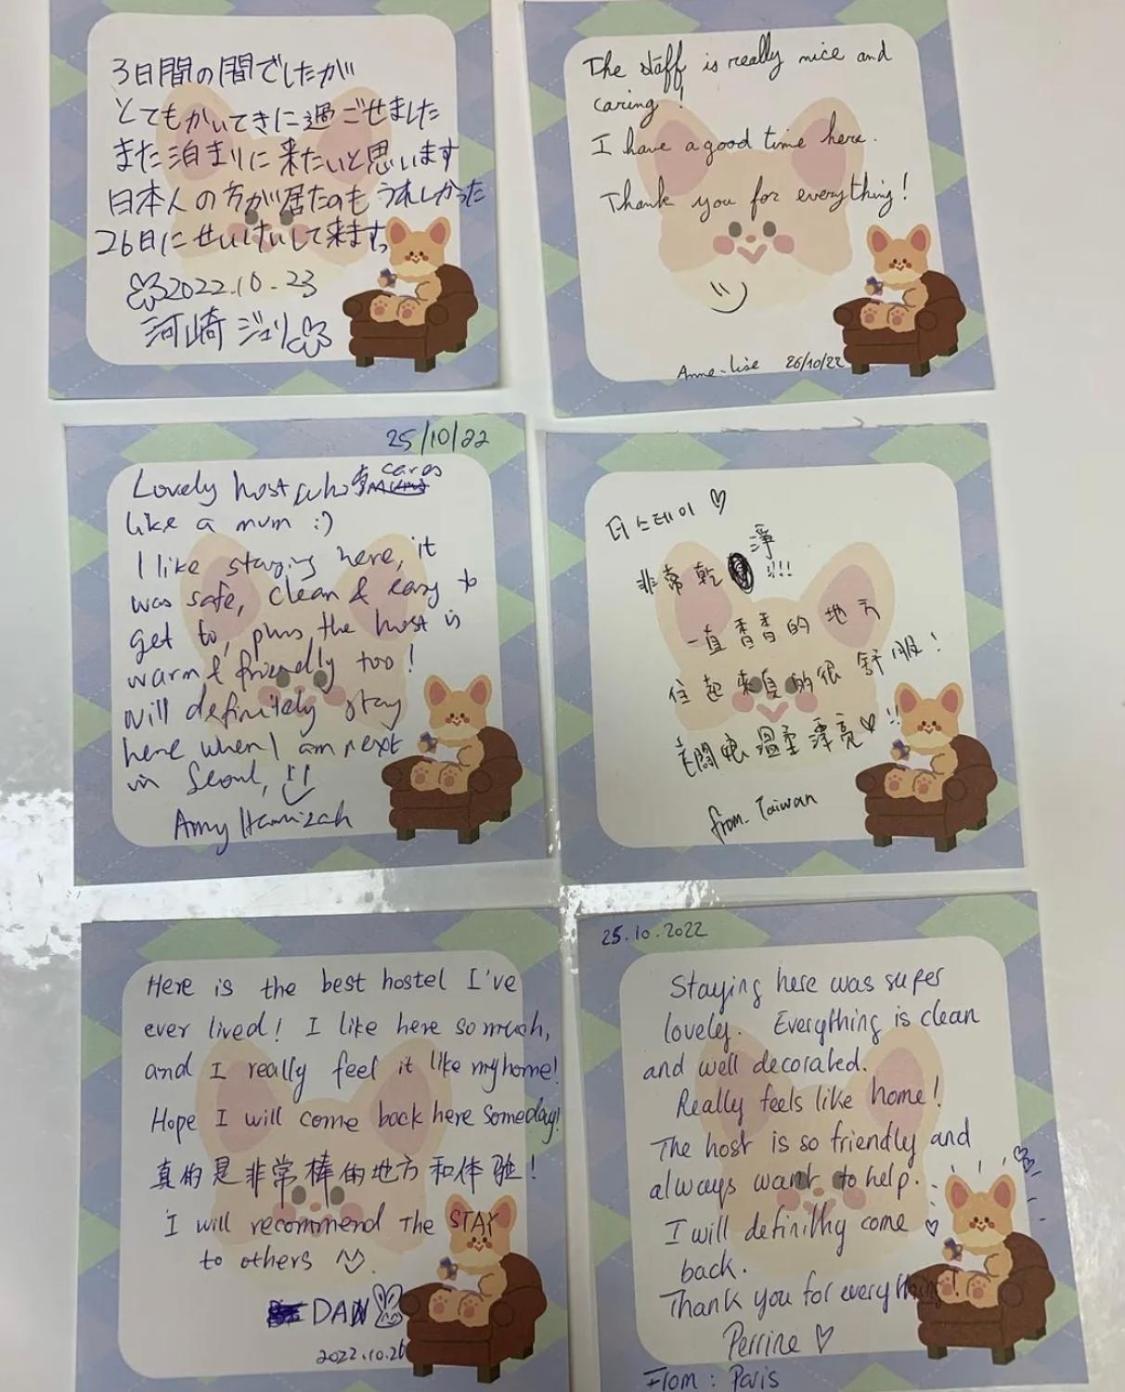 3日間の間でしたが
とてもかいてきに過ごせました
また泊まりに来たいと思います
日本人の方が居たのもうれしかった
26日にせいけいして来ます。
2022.10.23
河崎 ジュリ
The staff is really nice and
caring!
I have a good time here.
Thank you for everything!
Anne-Lise 26/10/22
25/10/22
Lovely host who cares
like a mum :)
I like staying here, it
was safe, clean & easy to
get to, plus the host is
warm & friendly too!
Will definitely stay
here when I am next
in Seoul,
Amy Hamizah
더 스테이 ♡
非常乾淨!!!
一直香香的地方
住起來真的很舒服!
老闆娘溫柔漂亮♡!!
from. Taiwan
Here is the best hostel I've
ever lived! I like here so much,
and I really feel it like my home!
Hope I will come back here someday!
真的是非常棒的地方和体验!
I will recommend The STAY
to others
DAN
2022.10.26
25.10.2022
Staying here was super
lovely. Everything is clean
and well decorated.
Really feels like home!
The host is so friendly and
always want to help.
I will definithy come ♡
back.
Thank you for everything!
Perrine ♡
From : Paris